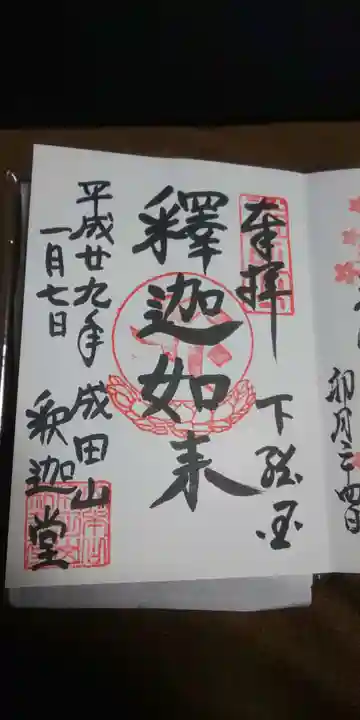 卯月二十四日
奉拝
下総国
釋迦如来
平成廿九年
一月七日
成田山
釈迦堂